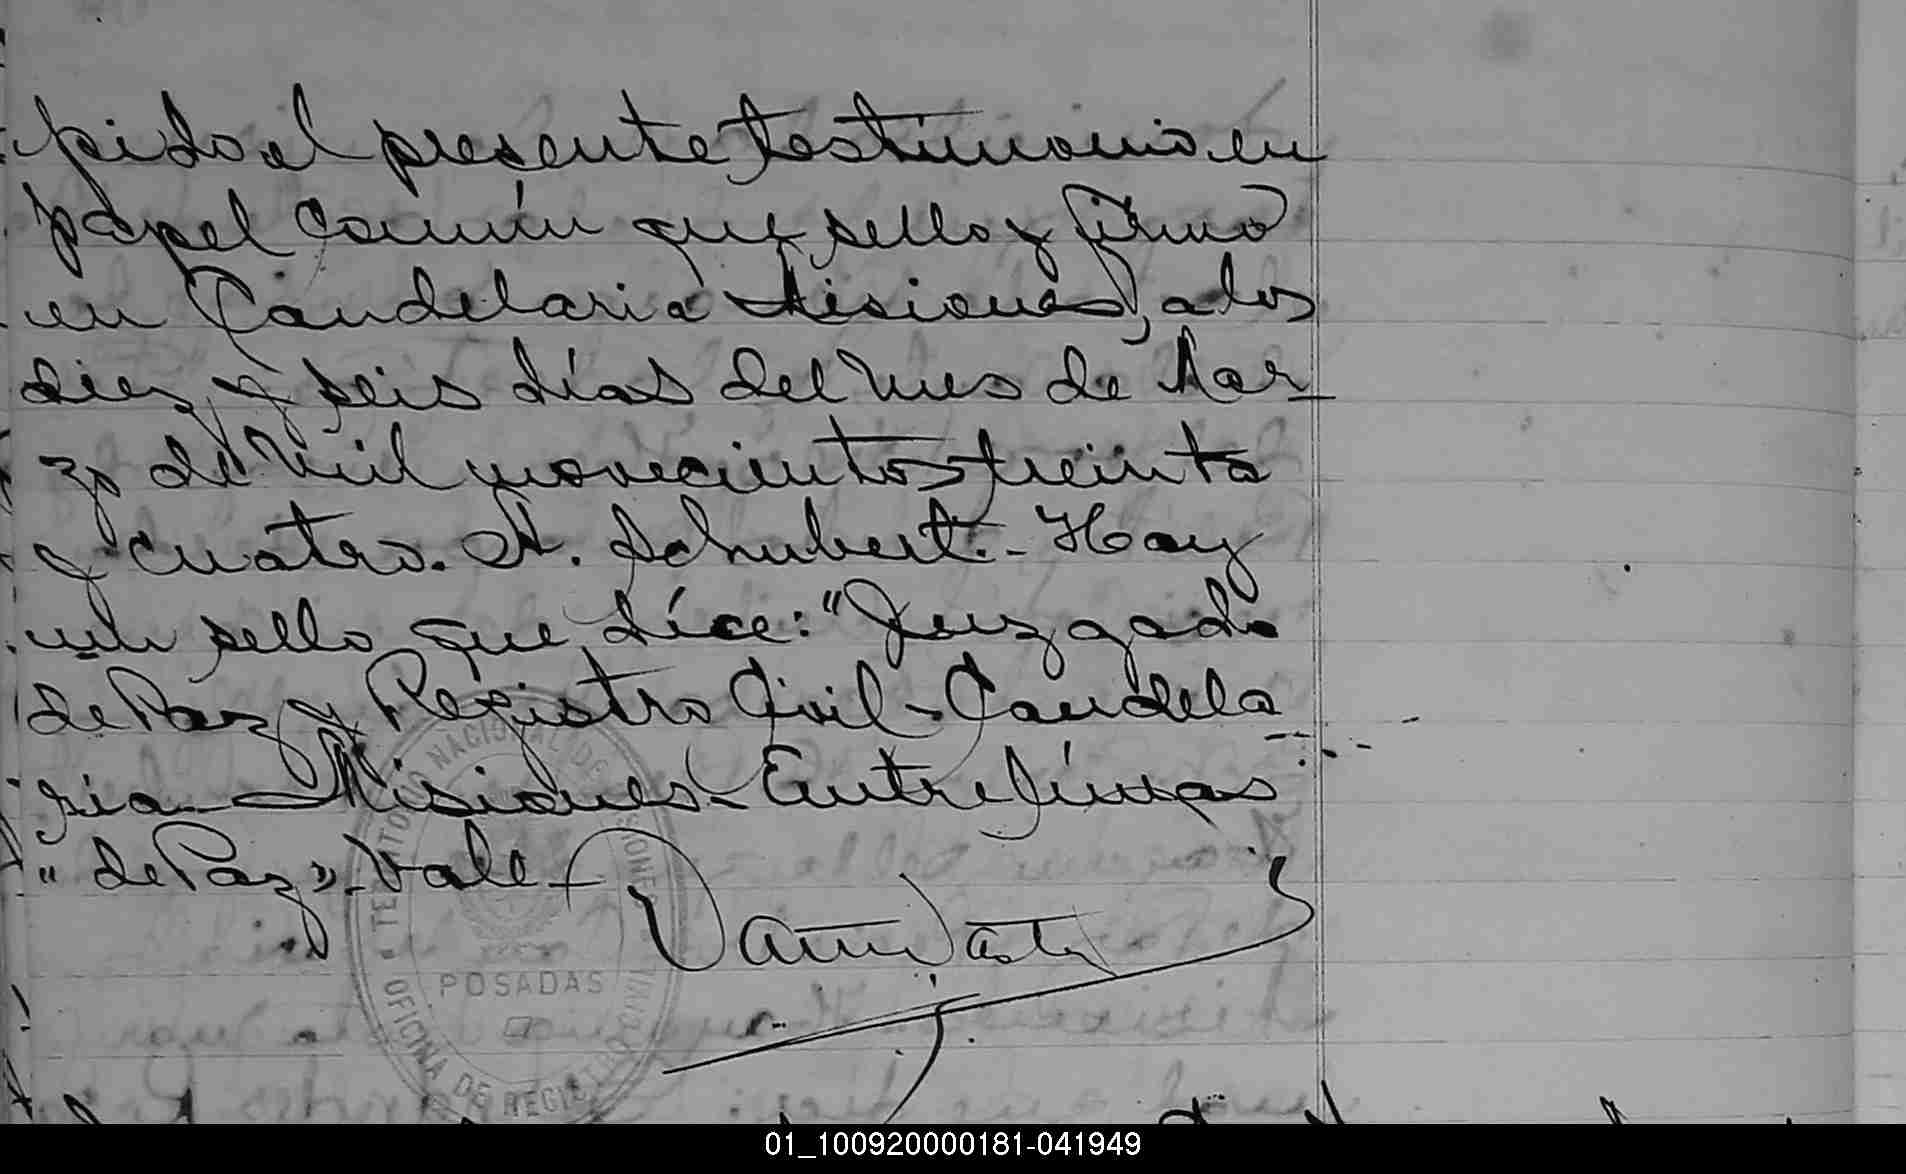 pido el presente testimonio en
papel común que sello y firmo
en Candelaria Misiones, a los
diez y seis días del mes de Mar-
zo de mil novecientos treinta
y cuatro. A. Schubert.- Hay
un sello que dice: "Juzgado
de Paz y Registro Civil - Candela
ria - Misiones - Entrelíneas
"de Paz" - Vale -
TERRITORIO NACIONAL DE MISIONES
POSADAS
OFICINA DE REGISTRO CIVIL
01_100920000181-041949